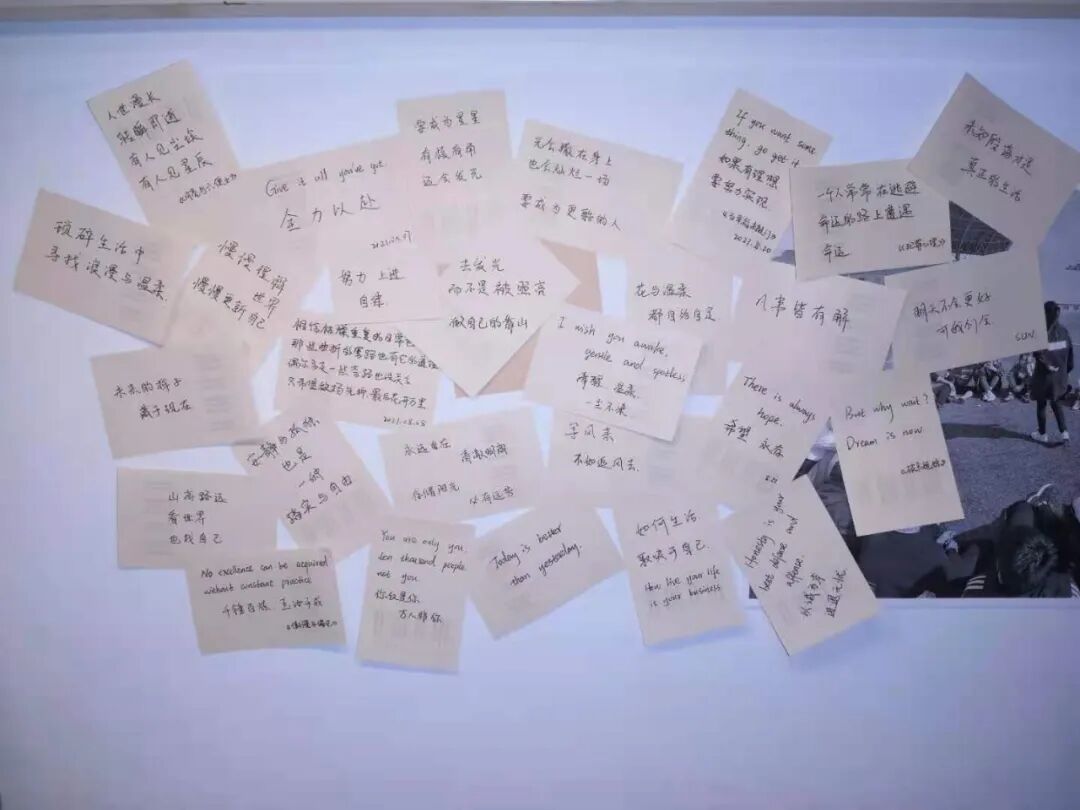 人世漫长
转瞬即逝
有人见尘埃
有人见星辰
Give it all you've got
全力以赴
2021.08.07
要成为星星
有棱有角
还会发光
光会撒在身上
也会灿烂一场
要成为更酷的人
If you want some
thing, go get it
如果有理想
要努力实现
《当幸福来敲门》
2021.8.20
一个人常常在逃避
命运的路上遭遇
命运
未知险海才是
真正的生活
琐碎生活中
寻找浪漫与温柔
慢慢理解 世界
慢慢更新自己
努力 上进
自律
去发光
而不是被照亮
做自己的靠山
花与温柔
都自给自足
凡事皆有解
明天不会更好
可我们会
SUN
相信枯燥重复的日常
那些曲折的弯路也有它的
偶尔多走一些弯路也没关系
只希望故事先听，最后花开万里
2021.08.08
I wish you awake,
gentle and spotless
清醒 温柔
一尘不染
There is always
hope.
希望 永存
But why wait?
Dream is now.
未来的样子
藏于现在
安静与孤独
也是
一种
踏实与自由
永远自在 清澈明朗
存储阳光 必有远芳
等风来
不如追风去
山高路远
看世界
也找自己
No excellence can be acquired
without constant practice
千锤百炼
You are only you,
ten thousand people
not you
你仅是你
万人非你
Today is better
than yesterday.
如何生活
取决于自己
How live your life
is your business
Honesty is your
best defense and
offense.
以诚为界
进退无忧